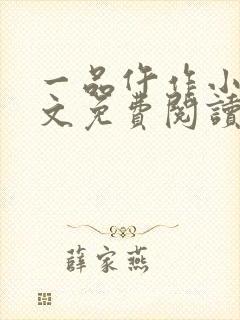 一品仵作小
文免費閱讀
薛家燕